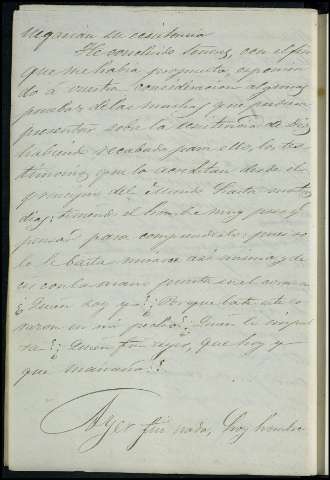 negarían su existencia
He concluido Señores, con el fin
que me había propuesto, exponien
do á vuestra consideracion algunas
pruebas de las muchas que pudiera
presentar sobre la existencia de Dios
habiendo recabado para ello, los tes
timonios que la acreditan desde el
principio del Mundo hasta nuestros
dias; teniendo el hombre muy poco q
pensar para comprenderlo; pues so
lo le basta mirarse asi mismo, y de
cir con la mano puesta en el corazon
¿Quién soy yo? ¿Por que late este co
razon en mi pecho? ¿Quien le impul
sa? ¿Quién fui ayer, que hoy y
que mañana?
Ayer fui nada, hoy hombre